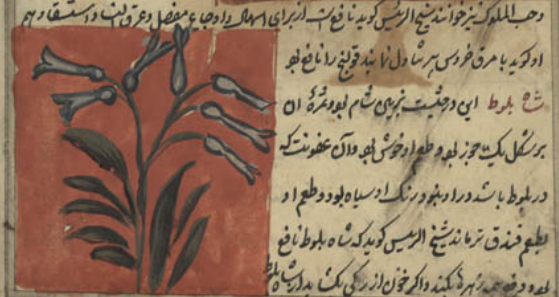 وحب الملوک نیز خوانند شیخ الرئیس کوید نافع بود از برای اسهال و اوجاع مفصل و عرق النسا و استسقا و هم
او کوید با مرق خروس پیر قولنج را نافع بود
شاه بلوط این درختیست بزمین شام بود و ثمرهٔ آن
بر شکل یک جوز بود و طعم او خوش بود و آن عفونت که
در بلوط باشد در او نبود و رنک او سیاه بود و طعم او
بطعم فندق تر ماند شیخ الرئیس کوید که شاه بلوط نافع
بود و دفع زهرها بکند و اکر خون از رکی بکشاید از شاه بلوط